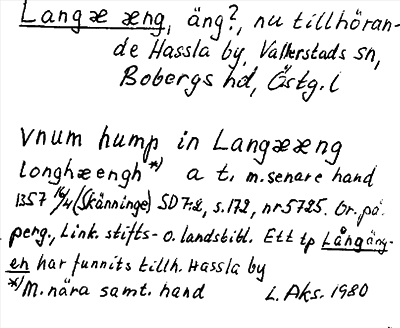 Langæ æng, äng?, nu tillhöran-
de Hassla by, Vallerstads sn,
Bobergs hd, Östg. l
Vnum hump in Langææng
longhæengh *) a t. m. senare hand
1357 16/4 (Skänninge) SD 7:2, s. 172, nr 5725. Or. på
perg., Link. stifts- o. landsbibl. Ett tp Långäng-
en har funnits tillh. Hassla by
*) M. nära samt. hand L. Aks. 1980